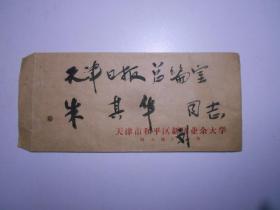 天津日报总编室
朱其华 同志
天津市和平区新华业余大学
刘